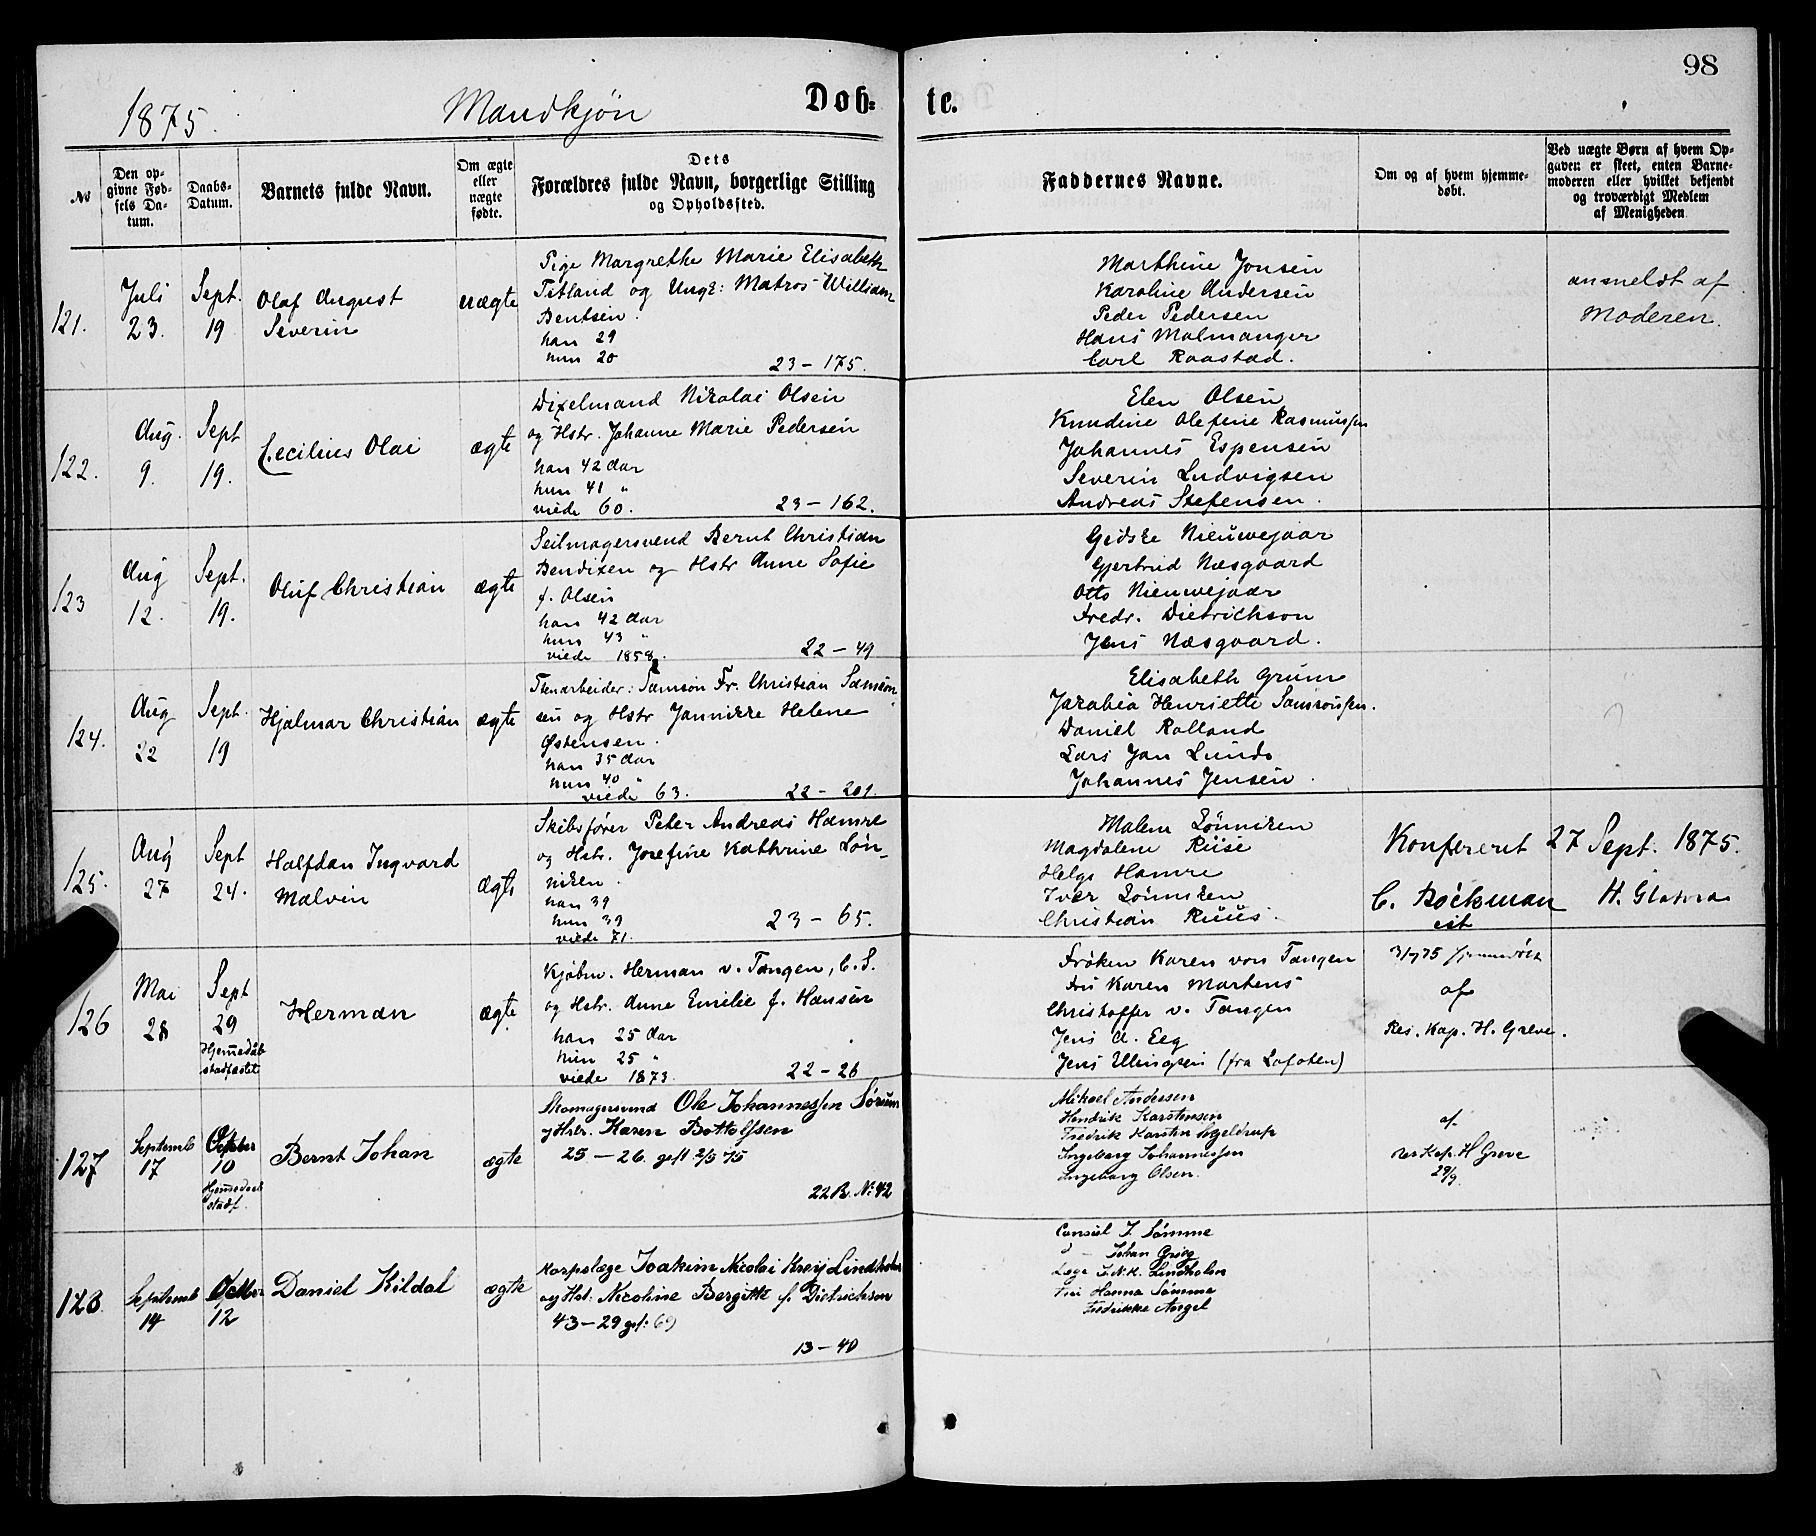 98
1875.
Mandkjøn
Døb=
te.
No
Den op-
givne Fød-
sels Da-
tum.
Daabs-
Datum.
Barnets fulde Navn.
Om ægte
eller
uægte
fødte.
Dets
Forældres fulde Navn, borgerlige Stilling
og Opholdssted.
Faddernes Navne.
Om og af hvem hjemme-
døbt.
Ved uægte Børn af hvem Op-
gaven er skeet, enten Barne-
moderen eller hvilket bekjendt
og troværdigt Medlem
af Menigheden
121.
Juli
23.
Sept.
19
Olaf August
Severin
uægte
Pige Margrethe Marie Elisabeth
Titland og Ungk: Matros William
Bentsen.
han 29
hun 20
23 – 175.
Marthine Jonsen
Karoline Andersen
Peder Pedersen
Hans Malmanger
Carl Raastad.
anmeldt af
Moderen.
122.
Aug.
9.
Sept
19.
Cecilius Olai
ægte
Dixelmand Nikolai Olsen
og Hstr. Johanne Marie Pedersen
han 42 Aar
hun 41 "
viede 60.
23 – 162.
Elen Olsen
Knudine Olefine Rasmussen
Johannes Espensen
Severin Ludvigsen
Andreas Stefensen.
123
Aug
12.
Sept.
19.
Oluf Christian
ægte
Seilmagersvend Bernt Christian
Bendixen og Hstr Anne Sofie
f. Olsen
han 42 Aar
hun 43 "
viede 1858.
22 – 49
Gidske Nieuwejaar
Gjertrud Næsgaard
Otto Nieuwejaar
Fredr. Dietrichson
Jens Næsgaard.
124.
Aug
22
Sept.
19
Hjalmar Christian
ægte
Stenarbeider: Samson Fr. Christian Samson
sen og Hstr Jannikke Helene
Østensen.
han 35 Aar
hun 40 "
viede 63.
22 – 201.
Elisabeth Grum
Jakobia Henriette Samsonsen.
Daniel Rolland
Lars Jan Lunds
Johannes Jensen.
125.
Aug
27
Sept
24.
Halfdan Ingvard
Malvin
ægte
Skibsfører Peter Andreas Hamre
og Hstr. Josefine Kathrine Løn-
niken.
han 39
hun 39
viede 71.
23 – 65.
Malene Lønniken
Magdalene Riise
Helge Hamre
Iver Lønniken
Christian Ruus.
Konfereret 27 Sept. 1875.
C. Bøckman
H. Glatved
126
Mai
28
Sept
29
Hjemedåb
stadfæstet
Herman
ægte
Kjøbm. Herman v. Tangen, C. S.
og Hstr. Anne Emilie f. Hansen
han 25 Aar
hun 25 "
viede 1873.
22 – 26
Frøken Karen von Tangen
Fru Karen Martens
Christoffer v. Tangen
Jens A. Eeg
Jens Ellingsen (fra Lofoten)
3/7 75 hjemmedøbt
af
Res. Kap. H. Greve.
127
Septemb
17
October
10
Hjemedaab
stadf.
Bernt Johan
ægte
Skomagersvend Ole Johannessen Sørum
og Hstr. Karen Bottolfsen
25 – 26. gift 2/5 75
22 B. No: 42
Mikael Andersen
Hendrik Karstensen
Fredrik Karsten Segeldrup
Ingeborg Johannessen
Ingeborg Olsen.
af
res Kap. H Greve
29/9.
128.
Septemb
14
October
12
Daniel Kildal
ægte
Korpslæge Joakim Nicolai Krey Lindholm
og Hst: Nicoline Bergitte f. Dietrichson
43 – 29 gif: 69
13 – 40
Consul J. Sømme
" – Johan Grieg
Læge J. N. K. Lindholm
Fru Hanna Sømme
Fredrikke Angel